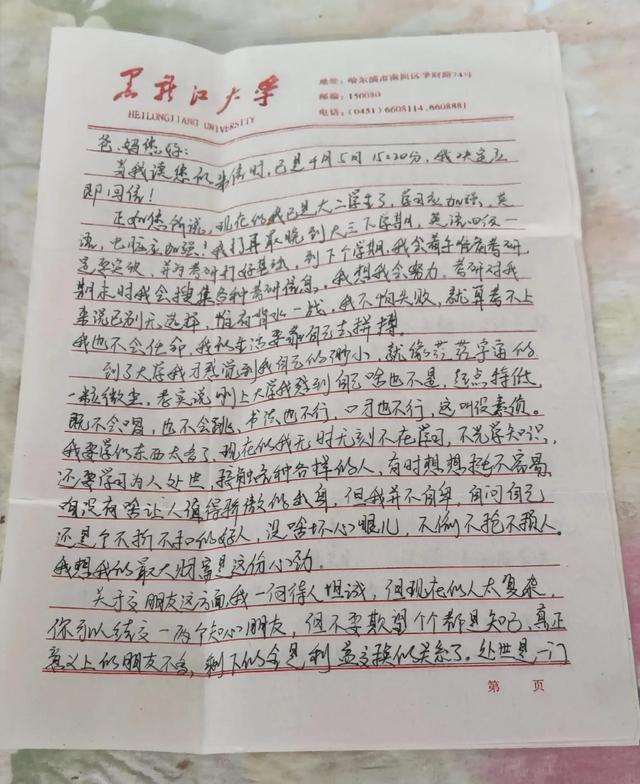 黑龙江大学
HEILONGJIANG UNIVERSITY
地址：哈尔滨市南岗区学府路74号
邮编：150080
电话：(0451) 6608114、6608881
爸、妈您好：
当我读您的来信时，已是4月5日15:20分，我决定立
即回信！
正如您所说，现在的我已是大二学生了，应该加强英
语，我打算最晚到大三下学期，英语四级一
定要突破，并为考研打好基础，到下个学期，我会着手准备考研
期末时我会搜集各种考研信息，我想我会努力，考研对我
来说已别无选择，惟有背水一战，我不怕失败，就算考不上
我也不会认命，我的生活要靠自己去拼搏
到了大学我才感觉到我自己的渺小，就像茫茫宇宙的
一粒微尘，老实说，刚上大学我感到自己啥也不是，起点特低
既不会唱，也不会跳，书法也不行，口才也不行，这叫没素质。
我要学的东西太多了，现在的我无时无刻不在学习，不光学知识，
还要学习为人处世，接触各种各样的人，有时想想挺不容易
咱没有啥让人值得骄傲的出身，但我并不自卑，自问自己
还是个不折不扣的好人，没啥坏心眼儿，不偷不抢不损人。
我想我的最大财富是这份心动
关于交朋友这方面，我一向待人坦诚，但现在的人太复杂，
你可以结交一两个知心朋友，但不要期望个个都是知己，真正
意义上的朋友不多，剩下的全是利益交换的关系了。处世是一门
第 页